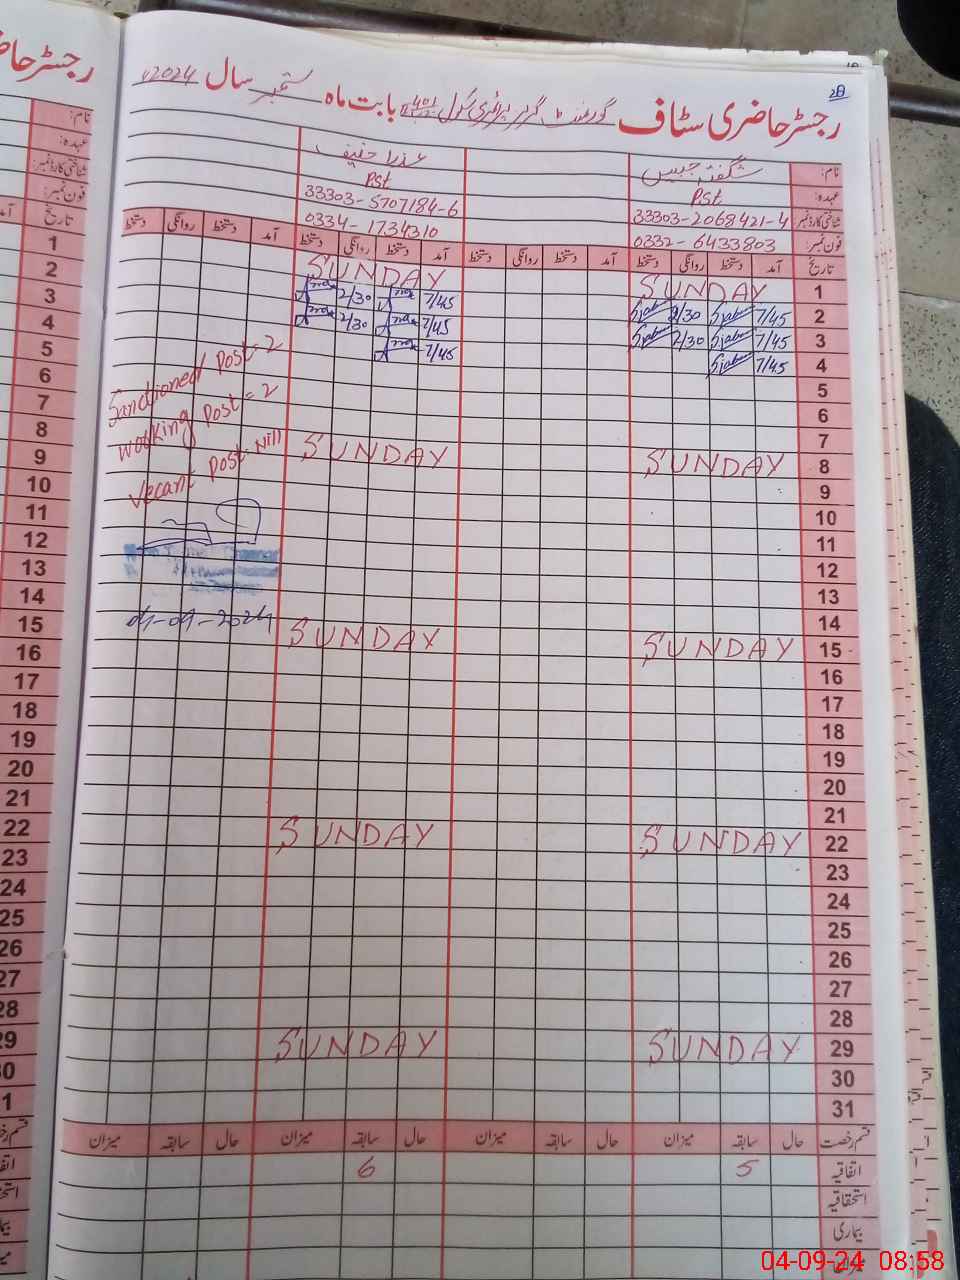 28
رجسٹر حاضری سٹاف گورنمنٹ گرلز پرائمری سکول 401 بابت ماہ ستمبر سال 2024ء
نام: شگفتہ جبیں عذرا حنیف
عہدہ: PST PST
شناختی کارڈ نمبر 33303-2068421-4 33303-5707184-6
فون نمبر: 0332-6433803 0334-1734310
تاریخ آمد دستخط روانگی دستخط آمد دستخط روانگی دستخط آمد دستخط روانگی دستخط آمد دستخط روانگی دستخط
1 SUNDAY SUNDAY
2 7/45 2/30 7/45 2/30
3 7/45 2/30 7/45 2/30
4 7/45 7/45
5
6
7
8 SUNDAY SUNDAY
9
10
11
12
13
14
15 SUNDAY SUNDAY
16
17
18
19
20
21
22 SUNDAY SUNDAY
23
24
25
26
27
28
29 SUNDAY SUNDAY
30
31
Sanctioned Post = 2
Working Post = 2
Vecant Post = Nill
04-09-2024
قسم رخصت حال سابقہ میزان حال سابقہ میزان حال سابقہ میزان حال سابقہ میزان
اتفاقیہ 5 6
استحقاقیہ
بیماری
میزان
رجسٹر حاضری
نام:
عہدہ:
شناختی کارڈ نمبر:
فون نمبر:
تاریخ
1
2
3
4
5
6
7
8
9
10
11
12
13
14
15
16
17
18
19
20
21
22
23
24
25
26
27
28
29
30
04-09-24 08:58